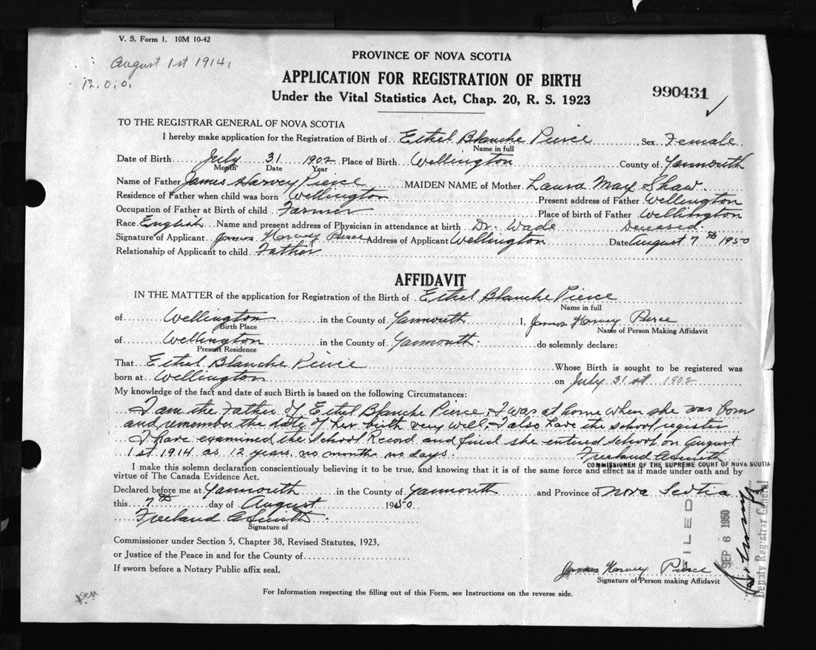 V. S. Form 1. 10M 10-42
August 1st 1914.
12. 0. 0.
PROVINCE OF NOVA SCOTIA
APPLICATION FOR REGISTRATION OF BIRTH
990431
Under the Vital Statistics Act, Chap. 20, R. S. 1923
TO THE REGISTRAR GENERAL OF NOVA SCOTIA
I hereby make application for the Registration of Birth of Ethel Blanche Pierce Sex Female
Name in full
Date of Birth July 31 1902 Place of Birth Wellington County of Yarmouth
Month Date Year
Name of Father James Harvey Pierce MAIDEN NAME of Mother Laura May Shaw
Residence of Father when child was born Wellington Present address of Father Wellington
Occupation of Father at Birth of child Farmer Place of birth of Father Wellington
Race English Name and present address of Physician in attendance at birth Dr. Wade Deceased
Signature of Applicant James Harvey Pierce Address of Applicant Wellington Date August 7th 1950
Relationship of Applicant to child Father
AFFIDAVIT
IN THE MATTER of the application for Registration of the Birth of Ethel Blanche Pierce
Name in full
of Wellington in the County of Yarmouth I, James Harvey Pierce
Birth Place Name of Person Making Affidavit
of Wellington in the County of Yarmouth do solemnly declare:
Present Residence
That Ethel Blanche Pierce Whose Birth is sought to be registered was
born at Wellington on July 31st 1902
My knowledge of the fact and date of such Birth is based on the following Circumstances:
I am the Father of Ethel Blanche Pierce, I was at home when she was born
and remember the date of her birth very well, I also have the school register
I have examined the School Record and find she entered school on August
1st 1914 as 12 years, no months no days. Freeland A Smith
COMMISSIONER OF THE SUPREME COURT OF NOVA SCOTIA
I make this solemn declaration conscientiously believing it to be true, and knowing that it is of the same force and effect as if made under oath and by
virtue of The Canada Evidence Act.
Declared before me at Yarmouth in the County of Yarmouth and Province of Nova Scotia
this 7th day of August 1950
Freeland A Smith
Signature of
Commissioner under Section 5, Chapter 38, Revised Statutes, 1923,
or Justice of the Peace in and for the County of
If sworn before a Notary Public affix seal.
James Harvey Pierce
Signature of Person making Affidavit
FILED
SEP 6 1950
Deputy Registrar General
For Information respecting the filling out of this Form, see Instructions on the reverse side.